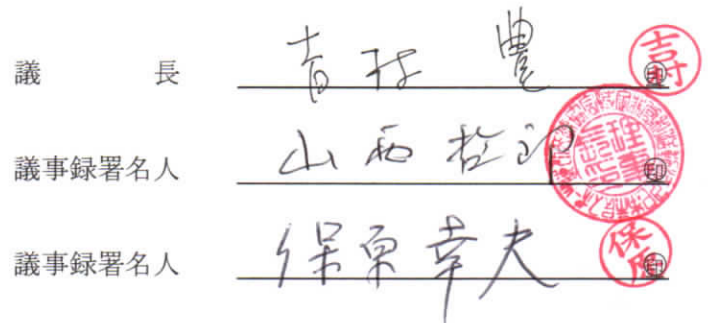 議長 吉村 豊 ㊞
議事録署名人 山西哲郎 ㊞
議事録署名人 保原幸夫 ㊞
保原